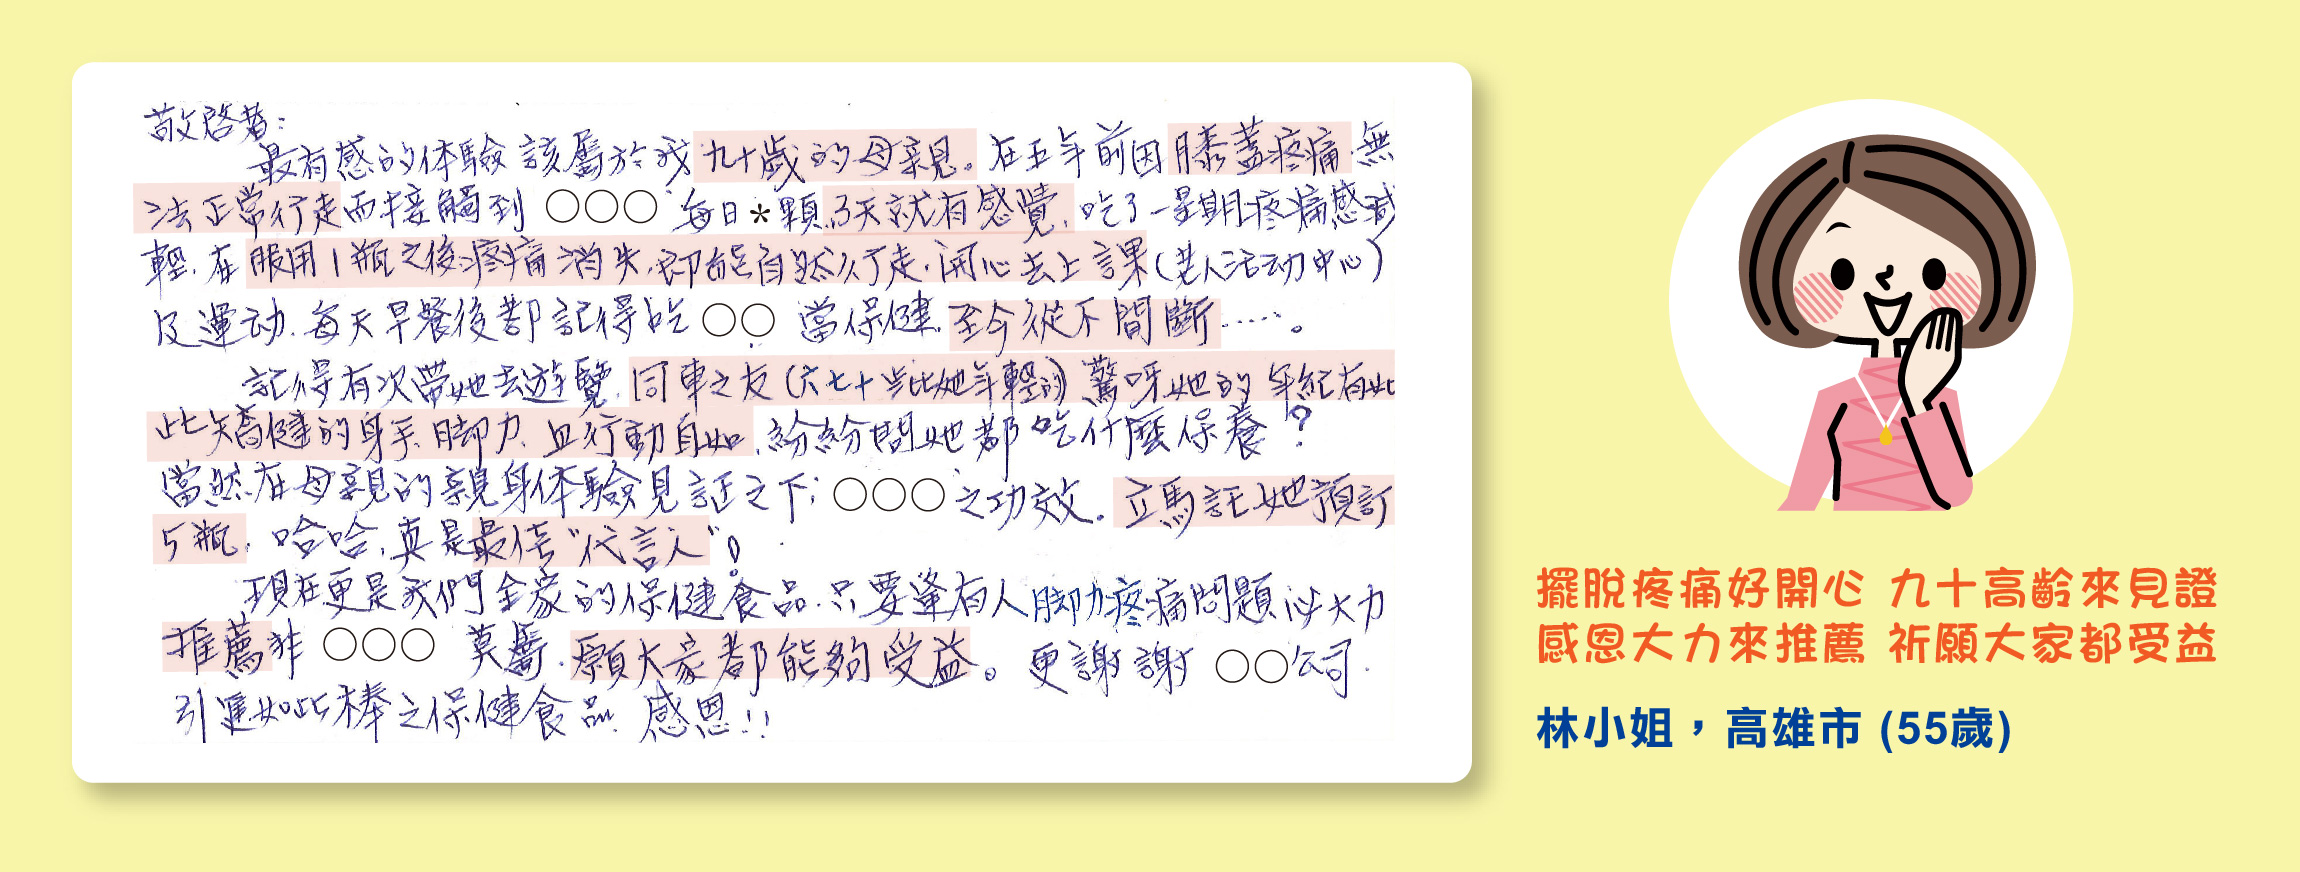 敬啓者:
最有感的体驗該屬於我九十歲的母親。在五年前因膝蓋疼痛.無
法正常行走而接觸到 ○○○ 每日*顆.3天就有感覺,吃了一星期疼痛感減
輕.在服用1瓶之後.疼痛消失.却能自然行走.開心去上課(老人活动中心)
及運动.每天早餐後都記得吃 ○○ 當保健.至今從不間斷‥‥‥。
記得有次帶她去遊覽.同車之友(六七十岁比她年輕的)驚呀她的年紀有如
此矯健的身手.脚力.且行動自如.紛紛問她都吃什麼保養?
當然在母親的親身体驗見証之下; ○○○ 之功效。立馬託她預訂
5瓶. 哈哈,真是最佳"代言人"!
現在更是我們全家的保健食品.只要逢有人脚力疼痛問題必大力
推薦非 ○○○ 莫屬.願大家都能夠受益。更謝謝 ○○公司.
引進如此棒之保健食品.感恩!!
擺脫疼痛好開心 九十高齡來見證
感恩大力來推薦 祈願大家都受益
林小姐,高雄市 (55歲)